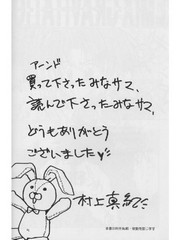 アーンド
買って下さったみなサマ、
読んで下さったみなサマ、
どうもありがとう
ございました
村上真紀